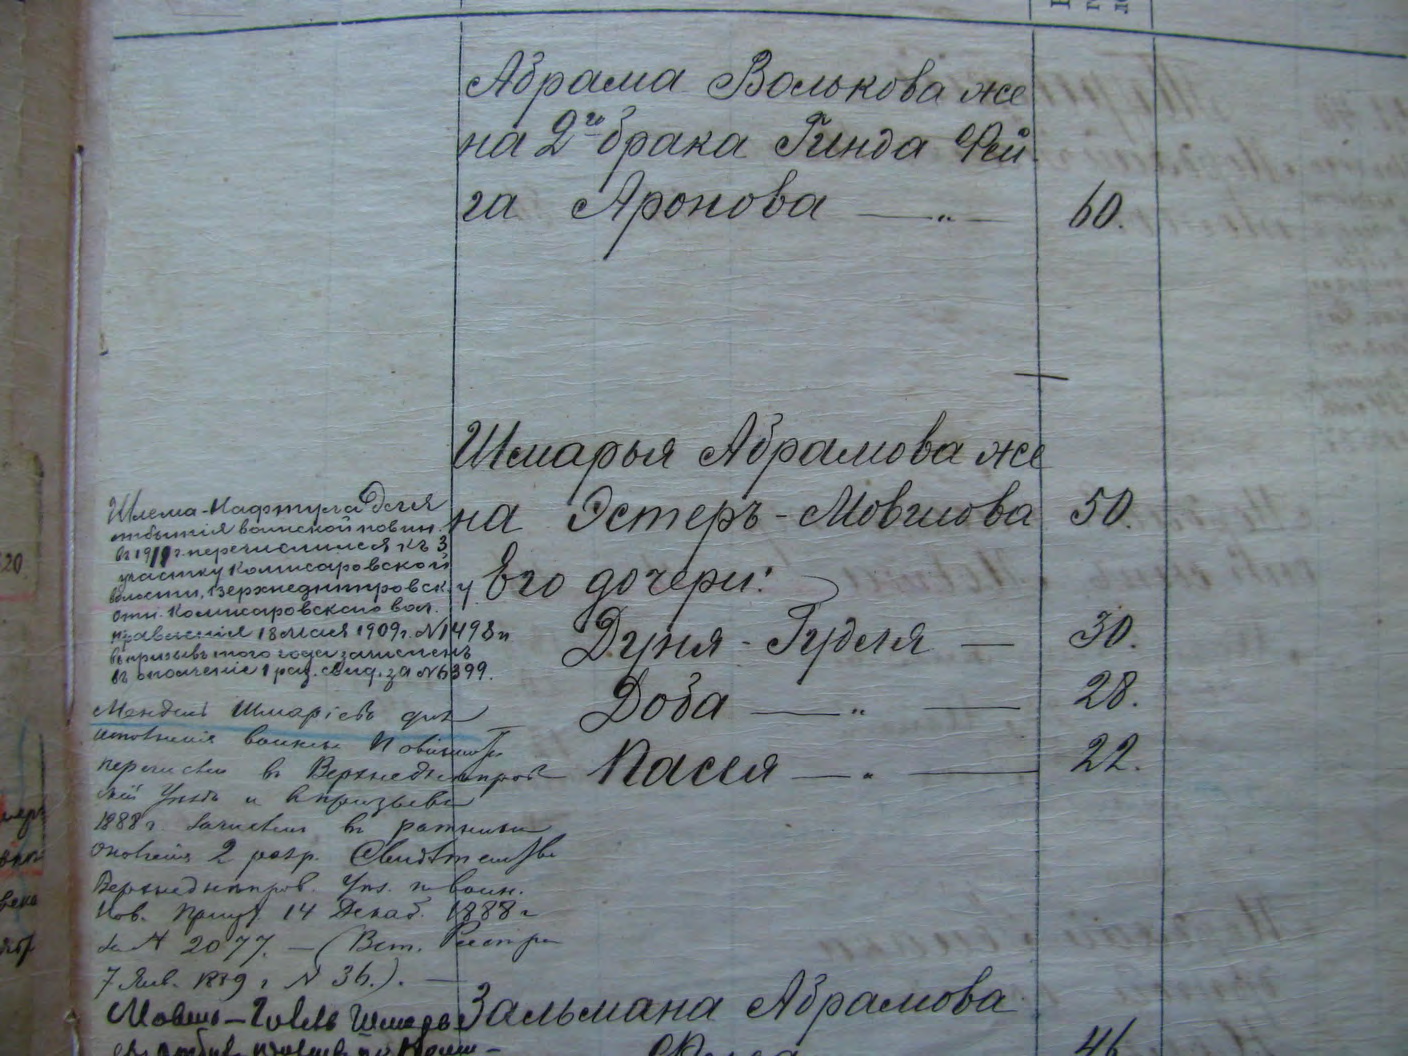 Абрама Волькова же
на 2й брака Гинда Фей
га Аронова — „ — 60.
Шмарья Абрамова же
на Эстеръ-Мовшова 50.
Его дочери:
Дуня-Гуделя — 30.
Доба — „ — 28.
Пасся — „ — 22.
Зальмана Абрамова
46
Шлема-Нафтула для
отбытія воинской повин.
въ 19 г. перечислился къ 3
участку Комисаровской
волости, Верхнеднѣпровск. у
отн. Комисаровскаго вол.
правленія 18 мая 1909 г. №1498 и
въ призывъ того года зачисленъ
въ ополченіе 1 раз. свид. за №6399.
Мендель Шмаріевъ для
исполненія воинск. Повинности
перечислен в Верхнеднѣпров
скій Уѣздъ и в призывѣ
1888 г. Зачислен в ратники
ополченія 2 разр. Свидѣтельство
Верхнеднѣпров. Уѣз. по воин.
Пов. Присут. 14 Декаб. 1888 г
за № 2077. — (Вст. Реестра
7 Янв. 1889 г № 36.). —
Мовшъ-Говель